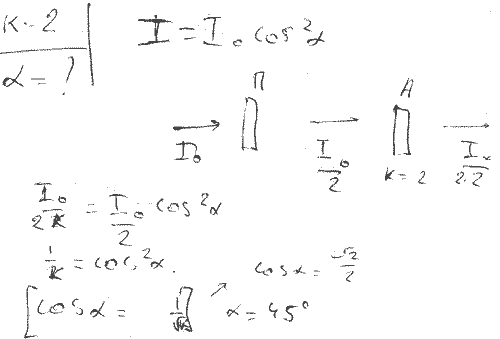 K - 2
α = ?
I = I₀ cos²α
П
A
I₀
I₀/2
K = 2
I₀/2·2
I₀/2K = I₀/2 cos²α
1/K = cos²α.
cos α = √2/2
[cos α = 1/√K]
α = 45°